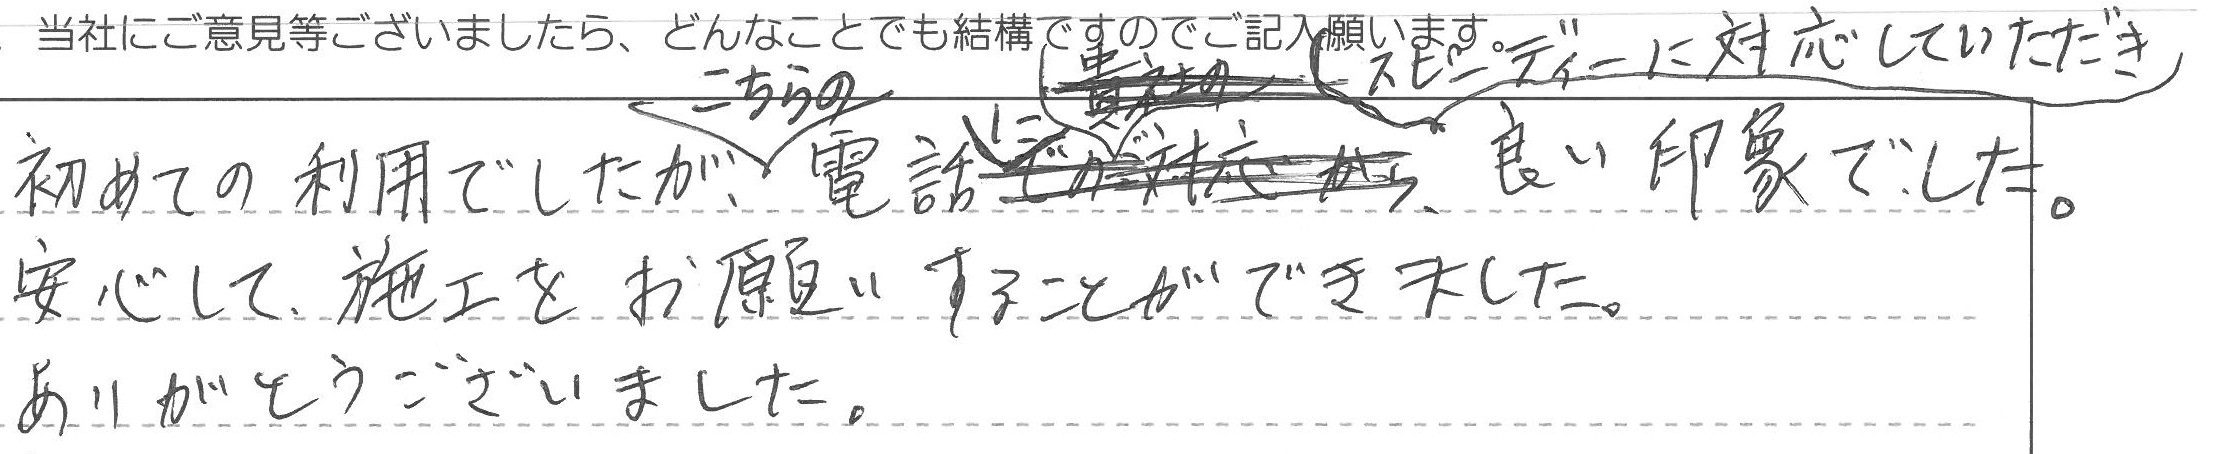 当社にご意見等ございましたら、どんなことでも結構ですのでご記入願います。
初めての利用でしたが、こちらの電話にスピーディーに対応していただき、良い印象でした。
安心して、施工をお願いすることができました。
ありがとうございました。